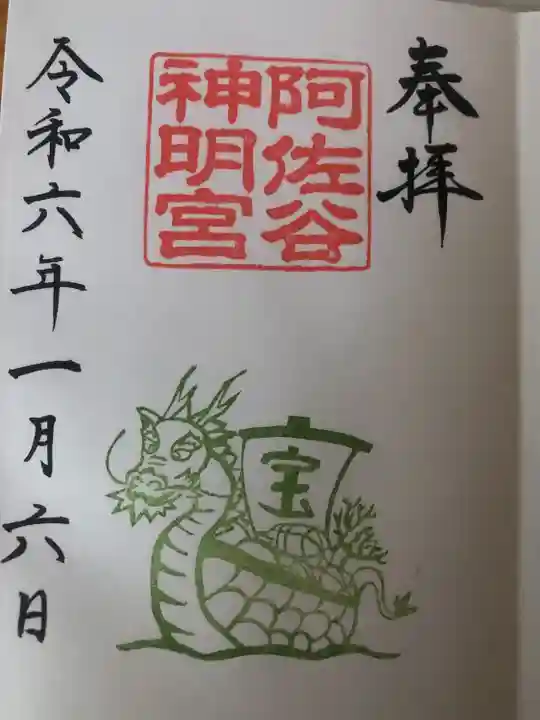 奉拝
阿佐谷
神明宮
宝
令和六年一月六日